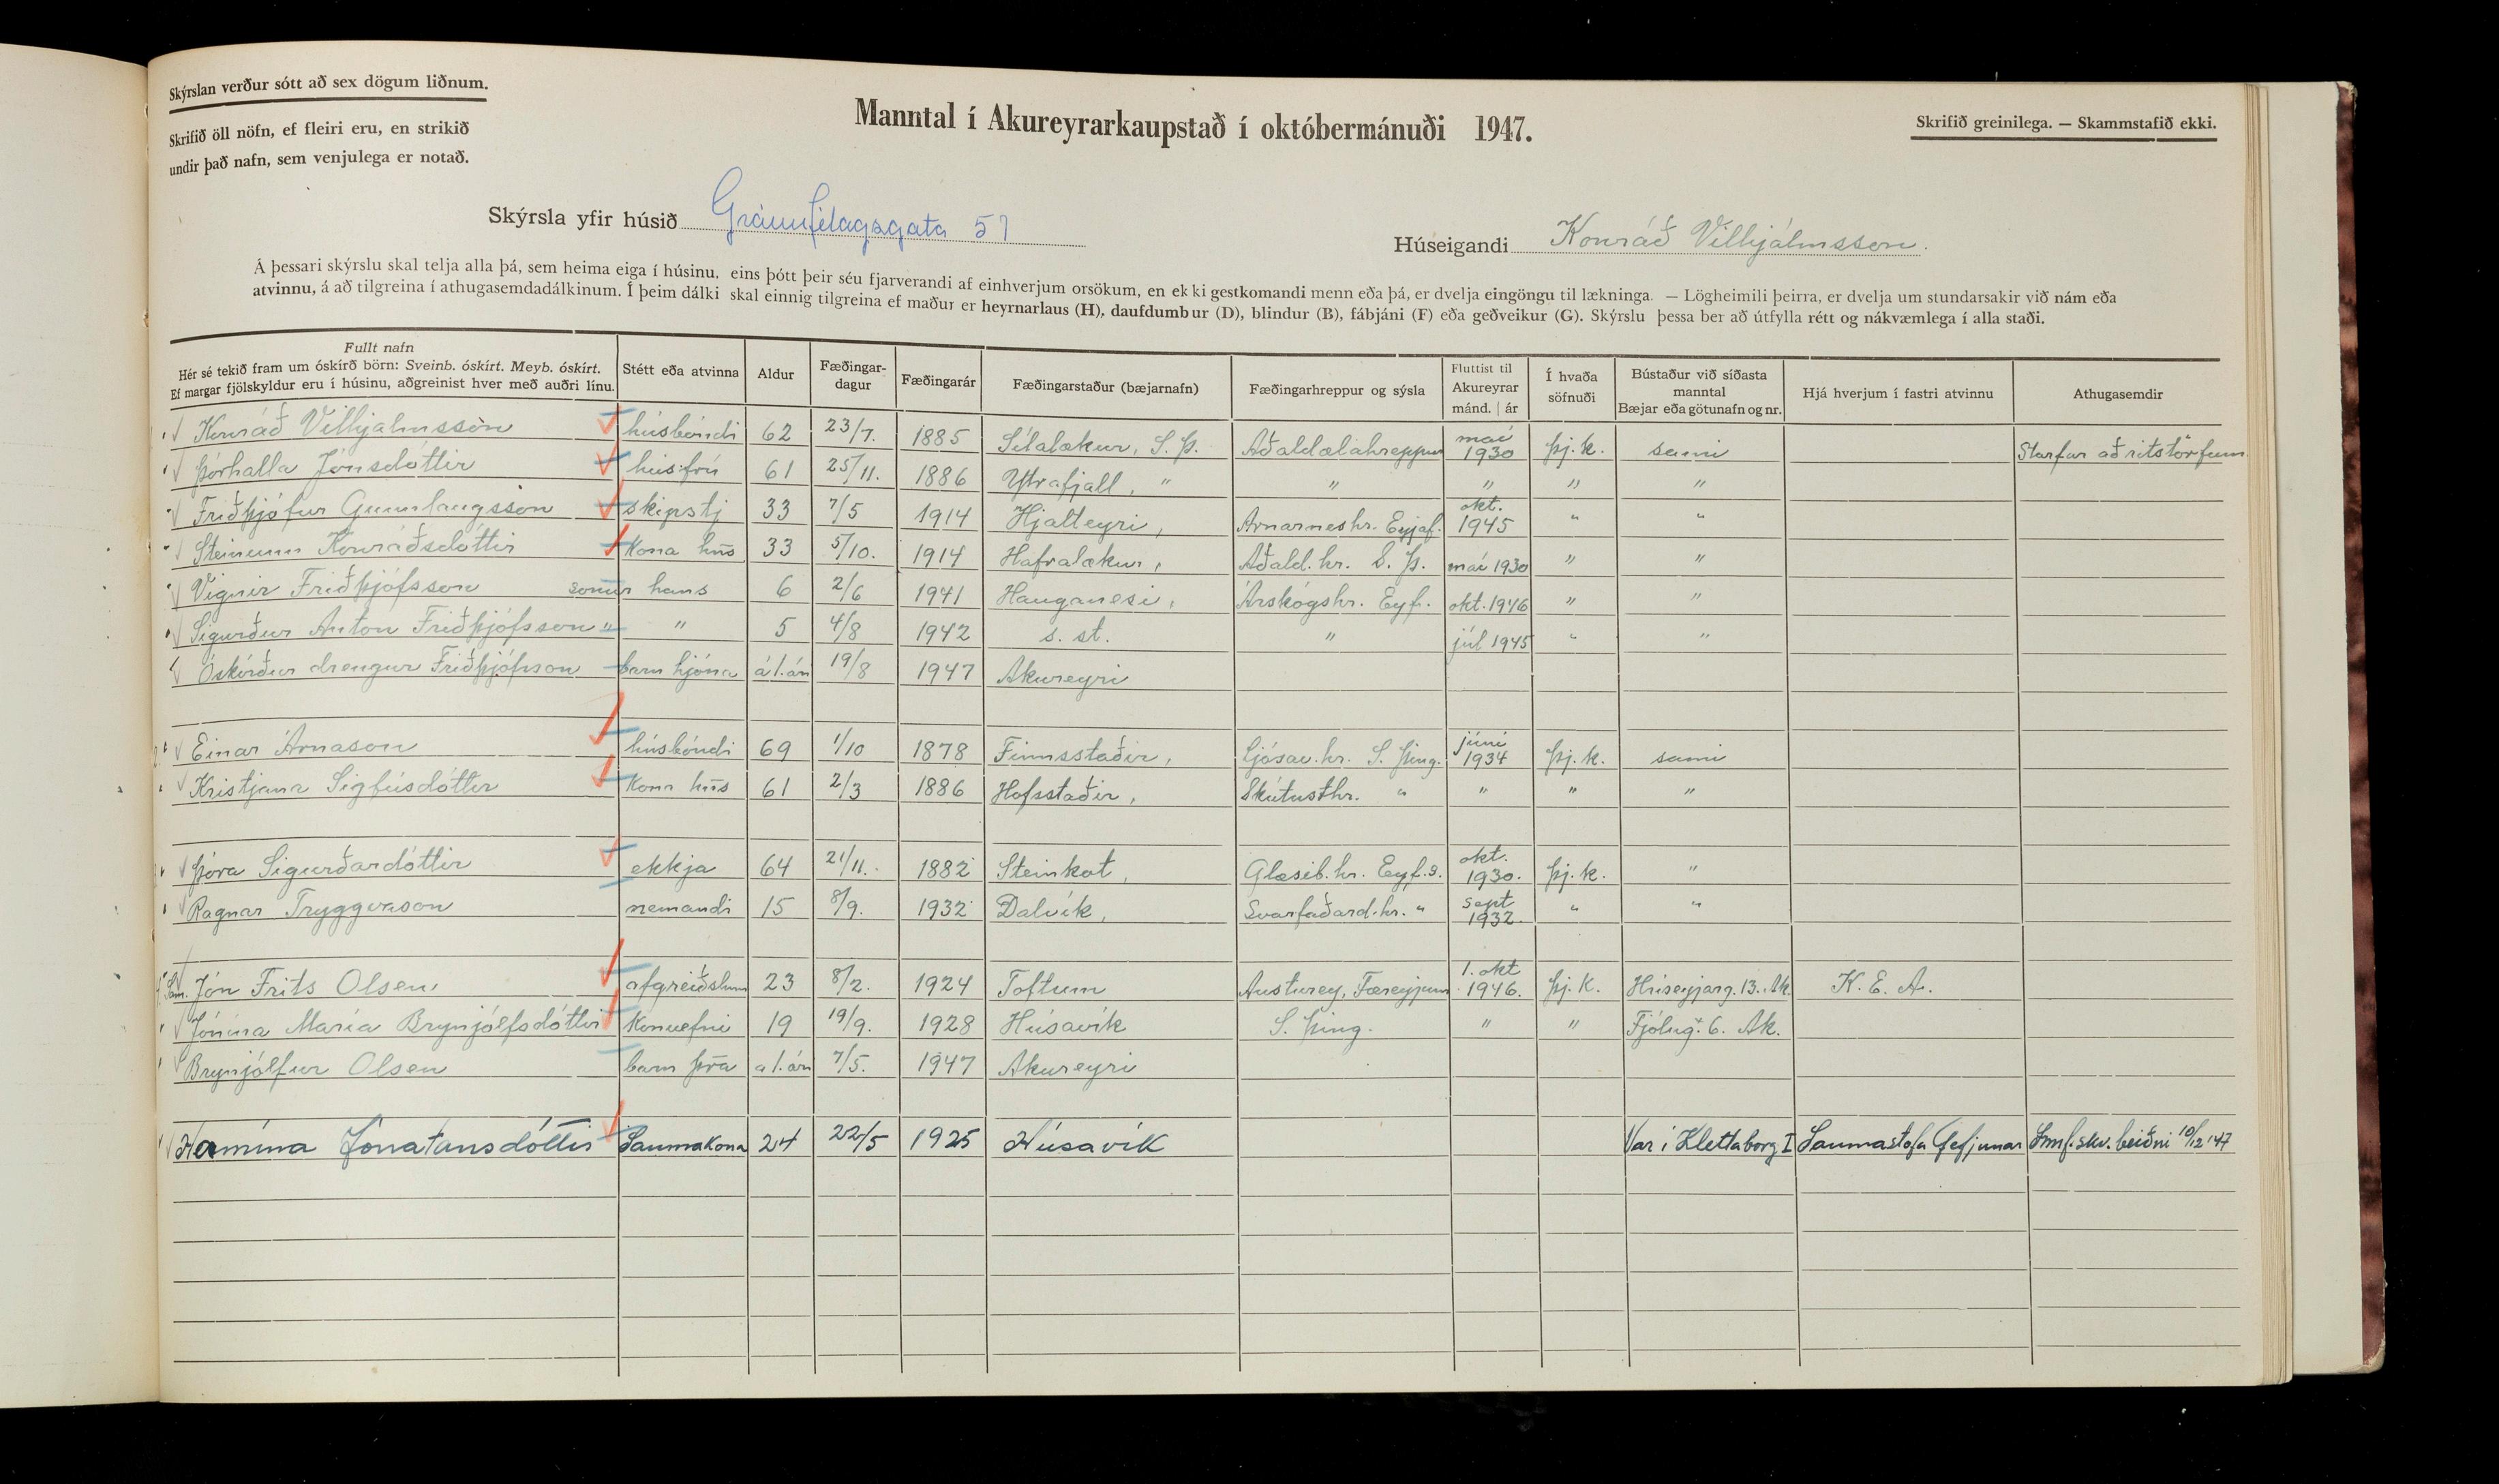 Skýrslan verður sótt að sex dögum liðnum.
Skrifið öll nöfn, ef fleiri eru, en strikið
undir það nafn, sem venjulega er notað.
Manntal í Akureyrarkaupstað í októbermánuði 1947.
Skrifið greinilega. — Skammstafið ekki.
Skýrsla yfir húsið Gránufélagsgata 57
Húseigandi Konráð Vilhjálmsson.
Á þessari skýrslu skal telja alla þá, sem heima eiga í húsinu, eins þótt þeir séu fjarverandi af einhverjum orsökum, en ekki gestkomandi menn eða þá, er dvelja eingöngu til lækninga. — Lögheimili þeirra, er dvelja um stundarsakir við nám eða
atvinnu, á að tilgreina í athugasemdadálkinum. Í þeim dálki skal einnig tilgreina ef maður er heyrnarlaus (H), daufdumbur (D), blindur (B), fábjáni (F) eða geðveikur (G). Skýrslu þessa ber að útfylla rétt og nákvæmlega í alla staði.
Fullt nafn Hér sé tekið fram um óskírð börn: Sveinb. óskírt. Meyb. óskírt. Ef margar fjölskyldur eru í húsinu, aðgreinist hver með auðri línu. Stétt eða atvinna Aldur Fæðingar-dagur Fæðingarár Fæðingarstaður (bæjarnafn) Fæðingarhreppur og sýsla Fluttist til Akureyrar mánd. | ár Í hvaða söfnuði Bústaður við síðasta manntal Bæjar eða götunafn og nr. Hjá hverjum í fastri atvinnu Athugasemdir
Konráð Vilhjálmsson húsbóndi 62 23/7. 1885 Sílalækur, S. Þ. Aðaldælahreppur maí 1930 þj. k. sami Starfar að ritstörfum
Þórhalla Jónsdóttir húsfrú 61 25/11. 1886 Ytrafjall, " " " " "
Friðþjófur Gunnlaugsson skipstj 33 7/5 1914 Hjalteyri, Arnarneshr. Eyjaf. okt. 1945 " "
Steinunn Konráðsdóttir Kona hns 33 5/10. 1914 Hafralækur, Aðald. hr. S. Þ. maí 1930 " "
Vignir Friðþjófsson sonur hans 6 2/6 1941 Hauganesi, Árskógshr. Eyf. okt. 1946 " "
Sigurður Anton Friðþjófsson " " 5 4/8 1942 s. st. " júl 1945 " "
Óskírður drengur Friðþjófsson barn hjóna á 1. ári 19/8 1947 Akureyri
Einar Árnason húsbóndi 69 1/10 1878 Finnsstaðir, Ljósav. hr. S. Þing. júní 1934 þj. k. sami
Kristjana Sigfúsdóttir Kona hns 61 2/3 1886 Hofsstaðir, Skútusthr. " " " "
Þóra Sigurðardóttir ekkja 64 21/11. 1882 Steinkot, Glæsib. hr. Eyf. s. okt. 1930. þj. k. "
Ragnar Tryggvason nemandi 15 8/9. 1932 Dalvík, Svarfaðard. hr. " sept 1932. " "
Sam. Jón Frits Olsen, afgreiðslum 23 8/2. 1924 Toftum Austurey, Færeyjum 1. okt 1946. þj. k. Hríseyjarg. 13. Ak. K. E. A.
Jónína María Brynjólfsdóttir Konuefni 19 19/9. 1928 Húsavík S. Þing. " " Fjólug. 6. Ak.
Brynjólfur Olsen barn þra á 1. ári 7/5. 1947 Akureyri
Hermína Jónatansdóttir Saumakona 24 22/5 1925 Húsavík Var í Klettaborg I Saumastofa Gefjunar Innf. skv. beiðni 10/12 '47